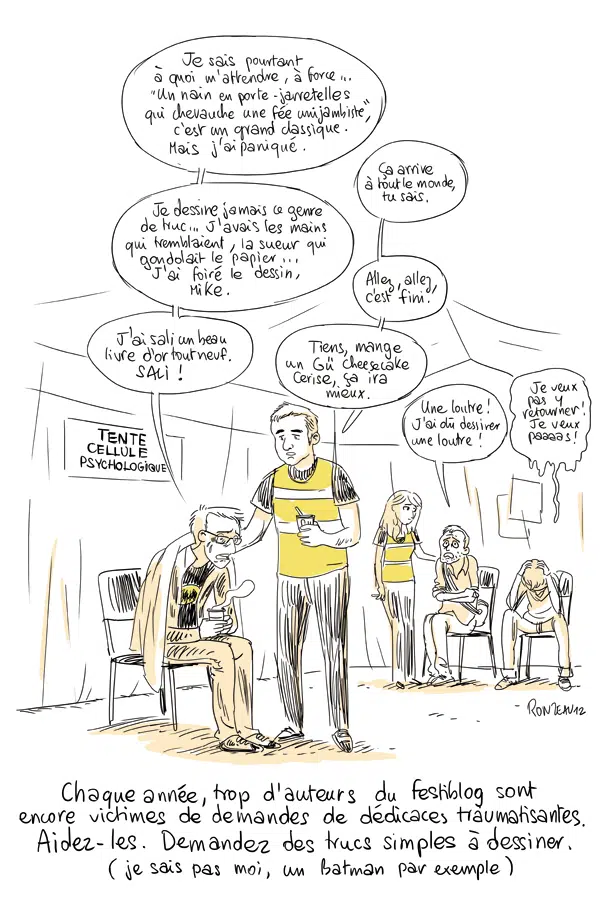 Je sais pourtant
à quoi m'attendre, à force...
"Un nain en porte-jarretelles
qui chevauche une fée unijambiste",
c'est un grand classique.
Mais j'ai paniqué.
Je dessine jamais ce genre
de truc... J'avais les mains
qui tremblaient, la sueur qui
gondolait le papier...
J'ai foiré le dessin,
Mike.
J'ai sali un beau
livre d'or tout neuf.
SALI !
Ça arrive
à tout le monde,
tu sais.
Allez, allez,
c'est fini.
Tiens, mange
un Gü Cheesecake
Cerise, ça ira
mieux.
Une loutre !
J'ai dû dessiner
une loutre !
Je veux
pas y
retourner !
Je veux
paaaas !
TENTE
CELLULE
PSYCHOLOGIQUE
RONZEAU12
Chaque année, trop d'auteurs du festiblog sont
encore victimes de demandes de dédicaces traumatisantes.
Aidez-les. Demandez des trucs simples à dessiner.
(je sais pas moi, un Batman par exemple)